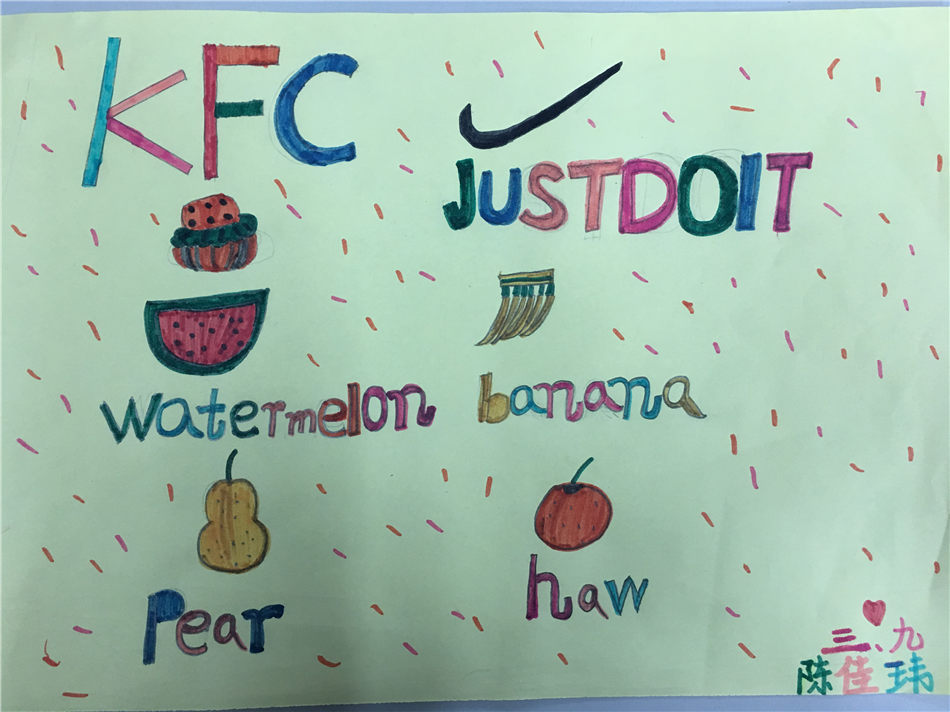 KFC
JUSTDOIT
watermelon
banana
Pear
haw
三、九
陈佳玮